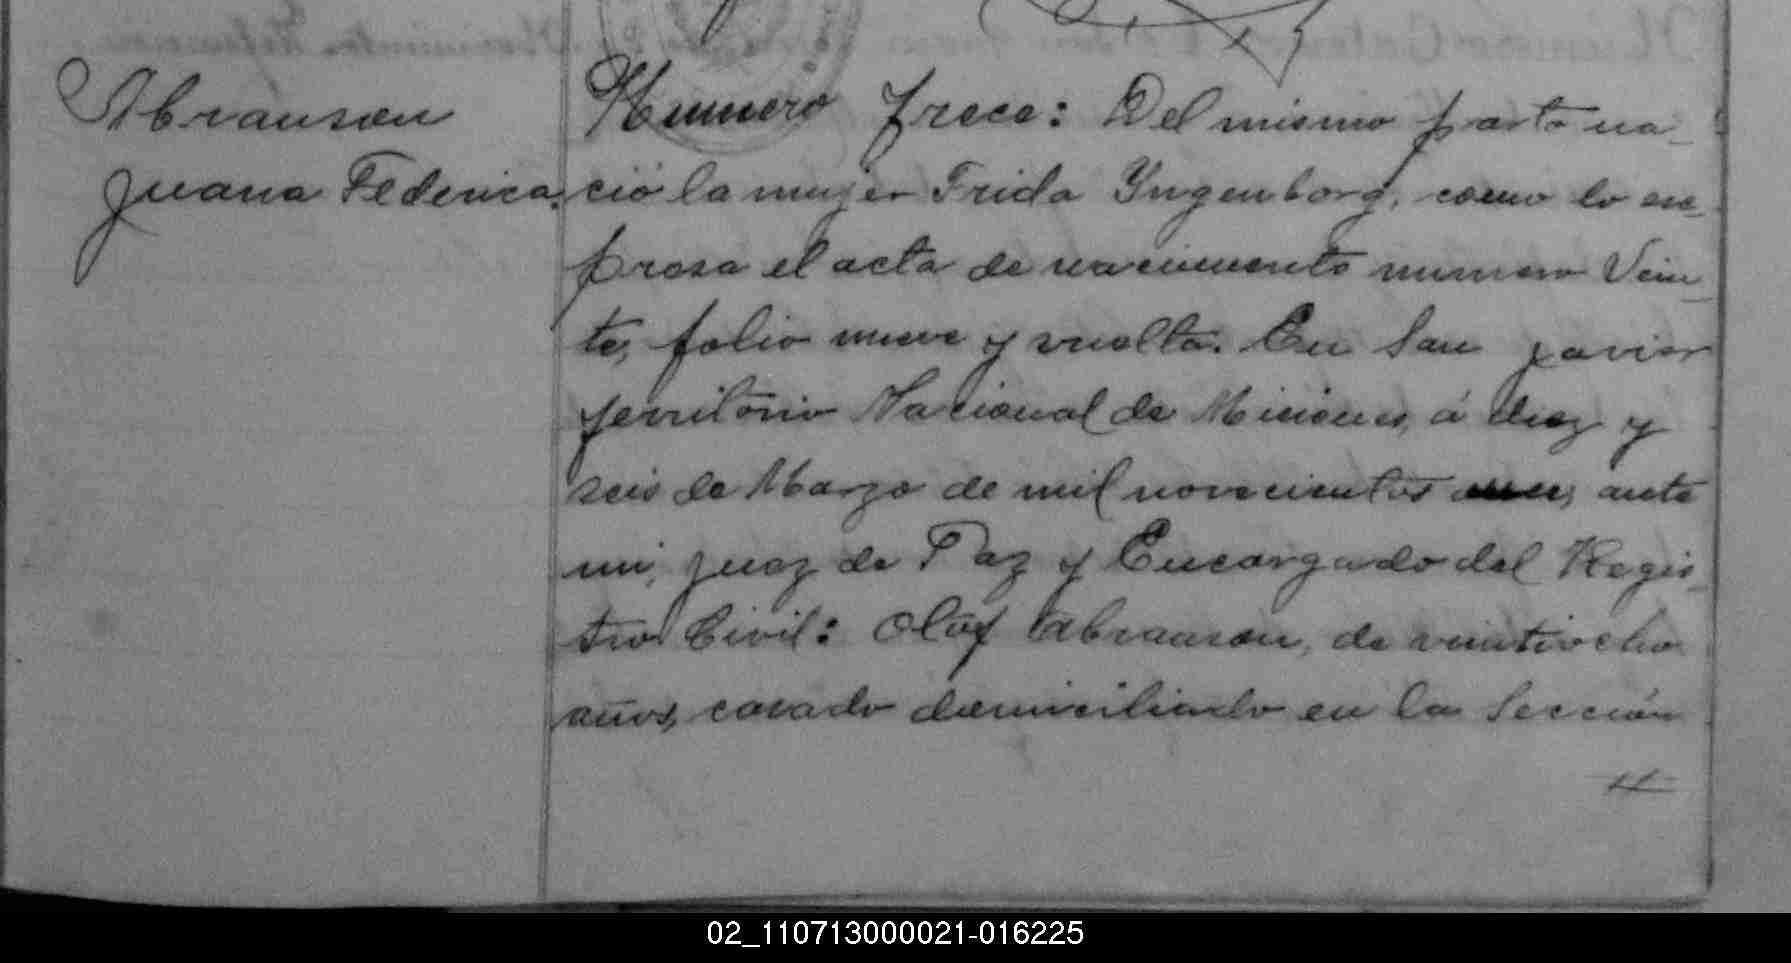 Abranson
Juana Federica.
Numero Trece: Del mismo parto na-
ció la mujer Frida Yngenborg, como lo ex-
presa el acta de nacimiento numero Vein-
te, folio nueve y vuelta. En San Javier
Territorio Nacional de Misiones, á diez y
seis de Marzo de mil novecientos ante
mi, Juez de Paz y Encargado del Regis-
tro Civil: Olof Abranson, de veintiocho
años, casado domiciliado en la Sección
02_110713000021-016225